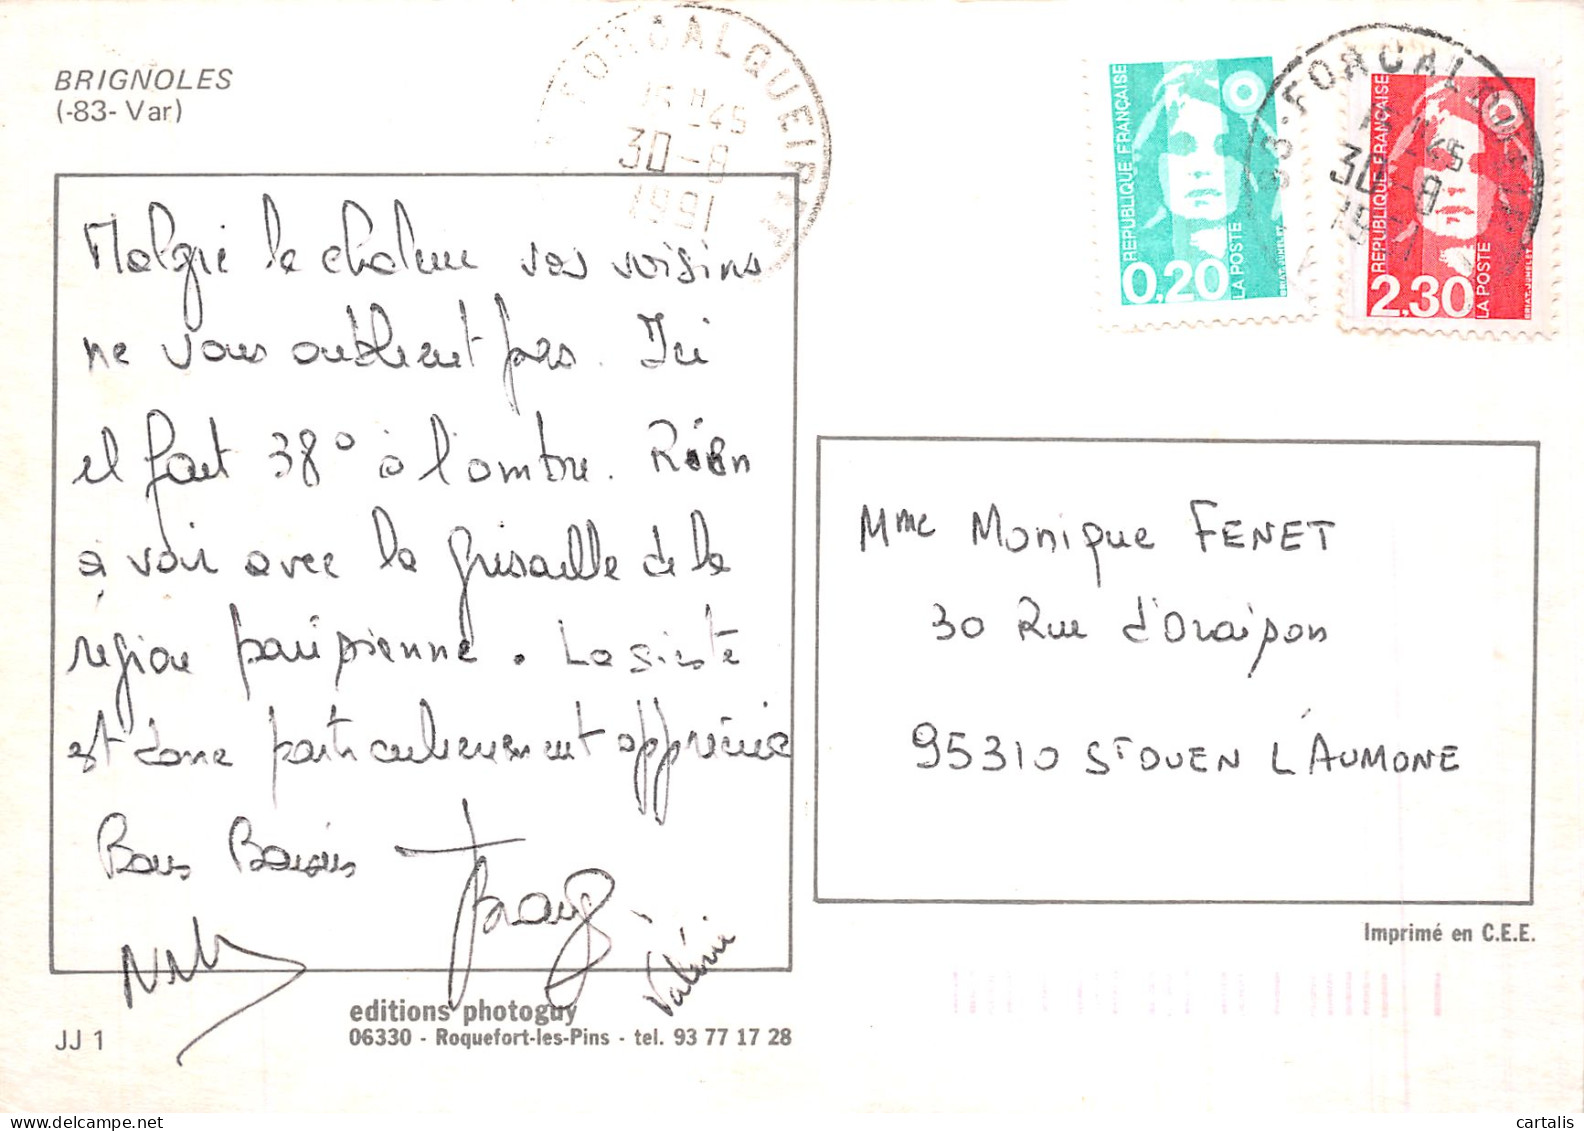 BRIGNOLES
(-83- Var)
FORCALQUEIRET
15 H 45
30-8
1991
RÉPUBLIQUE FRANÇAISE
0,20
LA POSTE
BRIAT.JUMELET
83-FORCALQUEIRET
30-8
RÉPUBLIQUE FRANÇAISE
2,30
LA POSTE
BRIAT.JUMELET
Malgré la chaleur vos voisins
ne vous oublient pas. Ici
il fait 38° à l'ombre. Rien
à voir avec la grisaille de la
région parisienne. La sieste
est donc particulièrement appréciée
Bons Baisers
Valérie
Mme Monique FENET
30 Rue d'Oraison
95310 ST OUEN L'AUMONE
Imprimé en C.E.E.
editions photoguy
06330 - Roquefort-les-Pins - tel. 93 77 17 28
JJ 1
cartalis